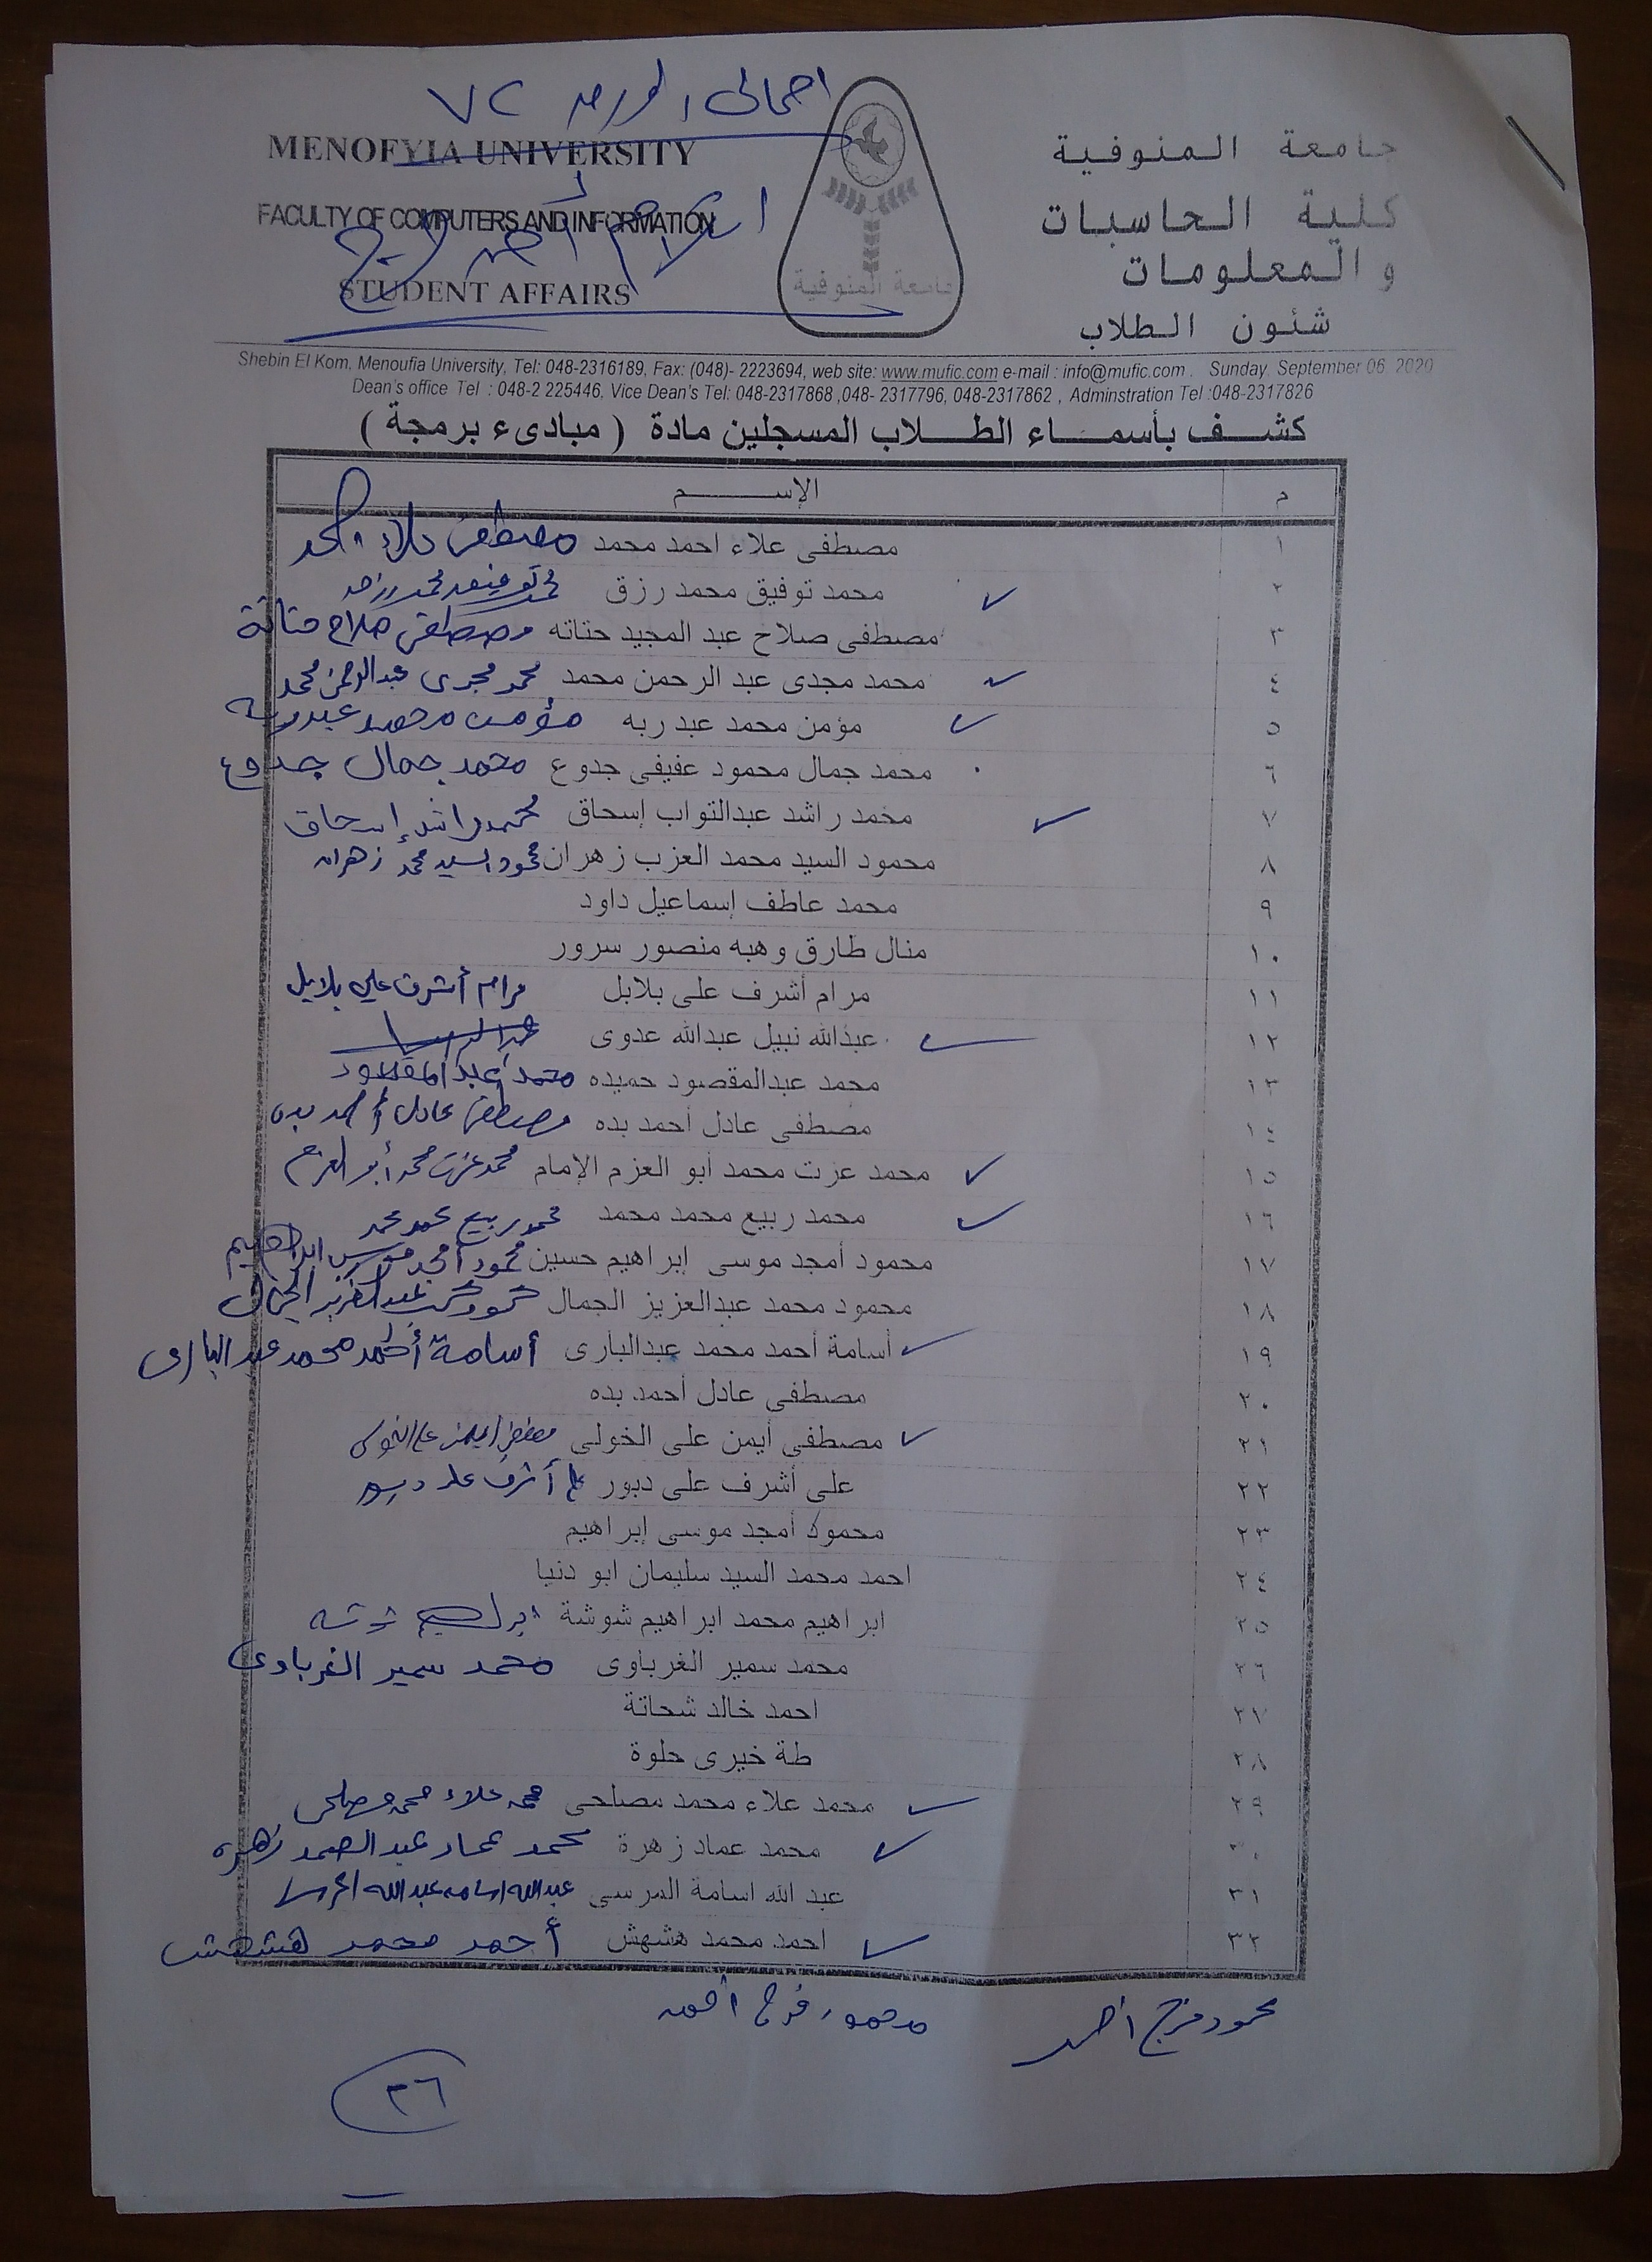 اجمالى الورق ٧٢
MENOFYIA UNIVERSITY
جامعة المنوفية
FACULTY OF COMPUTERS AND INFORMATION
كلية الحاسبات
والمعلومات
STUDENT AFFAIRS
جامعة المنوفية
شئون الطلاب
Shebin El Kom, Menoufia University, Tel: 048-2316189, Fax: (048)- 2223694, web site: www.mufic.com e-mail : info@mufic.com . Sunday, September 06, 2020
Dean's office Tel : 048-2 225446, Vice Dean's Tel: 048-2317868 ,048- 2317796, 048-2317862 , Adminstration Tel :048-2317826
كشف بأسماء الطلاب المسجلين مادة ( مبادىء برمجة )
م الإسم
١ مصطفى علاء احمد محمد مصطفى علاء احمد
٢ محمد توفيق محمد رزق محمد توفيق محمد رزق
٣ مصطفى صلاح عبد المجيد حتاته مصطفى صلاح حتاتة
٤ محمد مجدى عبد الرحمن محمد محمد مجدى عبدالرحمن محمد
٥ مؤمن محمد عبد ربه مؤمن محمد عبدربه
٦ محمد جمال محمود عفيفى جدوع محمد جمال جدوع
٧ محمد راشد عبدالتواب إسحاق محمد راشد إسحاق
٨ محمود السيد محمد العزب زهران محمود السيد محمد زهران
٩ محمد عاطف إسماعيل داود
١٠ منال طارق وهبه منصور سرور
١١ مرام أشرف على بلابل مرام أشرف علي بلابل
١٢ عبدالله نبيل عبدالله عدوى
١٣ محمد عبدالمقصود حميده محمد عبد المقصود
١٤ مصطفى عادل أحمد بده مصطفى عادل أحمد بده
١٥ محمد عزت محمد أبو العزم الإمام محمد عزت محمد أبو العزم
١٦ محمد ربيع محمد محمد محمد ربيع محمد محمد
١٧ محمود أمجد موسى إبراهيم حسين محمود أمجد موسى ابراهيم
١٨ محمود محمد عبدالعزيز الجمال محمود محمد عبدالعزيز الجمال
١٩ أسامة أحمد محمد عبدالبارى أسامة أحمد محمد عبد البارى
٢٠ مصطفى عادل أحمد بده
٢١ مصطفى أيمن على الخولى مصطفى ايمن على الخولى
٢٢ على أشرف على دبور على أشرف على دبور
٢٣ محمود أمجد موسى إبراهيم
٢٤ احمد محمد السيد سليمان ابو دنيا
٢٥ ابراهيم محمد ابراهيم شوشة ابراهيم شوشه
٢٦ محمد سمير الغرباوى محمد سمير الغرباوى
٢٧ احمد خالد شحاتة
٢٨ طة خيرى حلوة
٢٩ محمد علاء محمد مصلحى محمد علاء محمد مصلحى
٣٠ محمد عماد زهرة محمد عماد عبد الصمد زهره
٣١ عبد الله اسامة المرسى عبدالله اسامه عبدالله المرسى
٣٢ احمد محمد هشهش أحمد محمد هشهش
محمود فرج احمد محمود فرج أحمد
٢٦